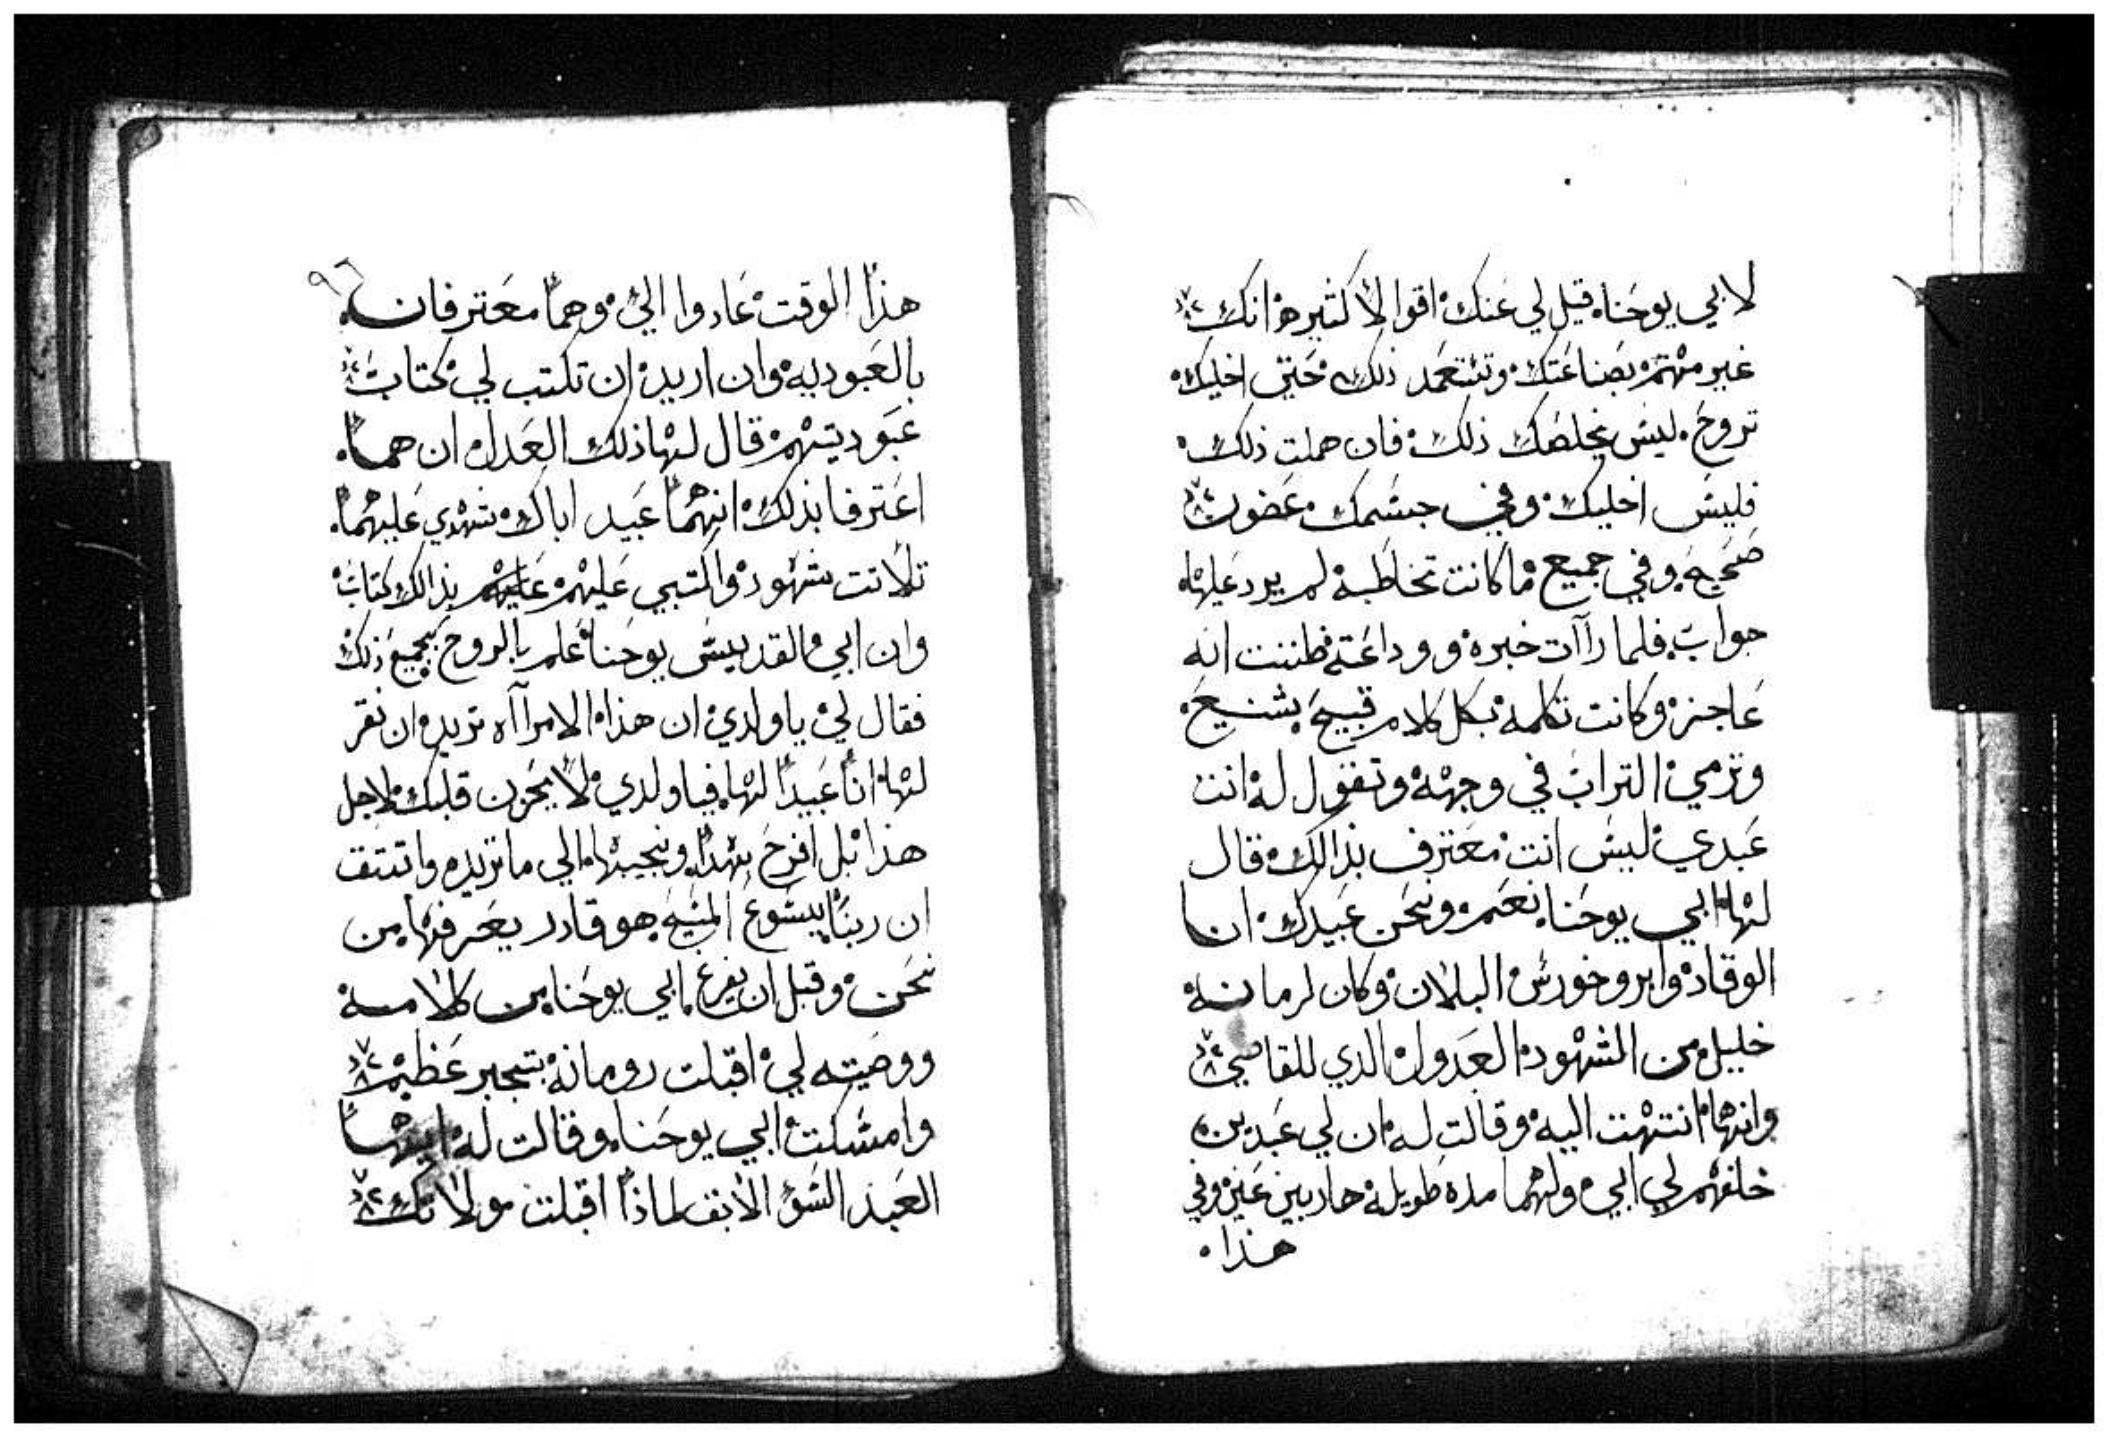 لابي يوحنا قيل لي عنك اقوالا كثيره انك
غير مهتم بصناعتك وتستعمد ذلك حتي اخليك
تروح ليس يخلصك ذلك فان هملت ذلك
فليس اخليك وفي جسمك عضون
صحيحه وفي جميع ما كانت تخاطبه لم يرد عليها
جواب فلما راآت خبره ووداعته فظننت انه
عاجز وكانت تكلمه بكل كلام قبيح بشنيع
وترمي التراب في وجهه وتقول له انت
عبدي ليس انت معترف بذالك قال
لها ابي يوحنا نعم ونحن عبيدك انا
الوقاد وابروخورس البلان وكان لرمانه
خليل من الشهود العدول الدي للقاضي
وانها انتهت اليه وقالت له ان لي عبدين
خلفهم لي ابي ولهما مده طويله هاربين عني وفي
هذا
٩٦
هذا الوقت عادوا الي وهما معترفان
بالعبوديه وان اريد ان تكتب لي كتاب
عبوديتهم قال لها ذلك العدل ان هما
اعترفا بذلك انهما عبيد اباك شهدي عليهما
تلاتت شهود واكتبي عليهم عليهم بذالك كتاب
وان ابي القديس يوحنا علم بالروح بجميع ذلك
فقال لي يا ولدي ان هذا الامرآاه تريد ان نقر
لها انا عبيدا لها فيا ولدي لا يحزن قلبك لاجل
هذا بل افرح بهدا ونجيبها الي ما تريده واتتق
ان ربنا يسوع المسيح هو قادر يعرفها من
نحن وقبل ان يفرغ ابي يوحنا من كلامه
ووصيته لي اقبلت رومانه بتجبر عظيم
وامسكت ابي يوحنا وقالت له ايها
العبد السو الابق لماذا اقبلت مولاتك